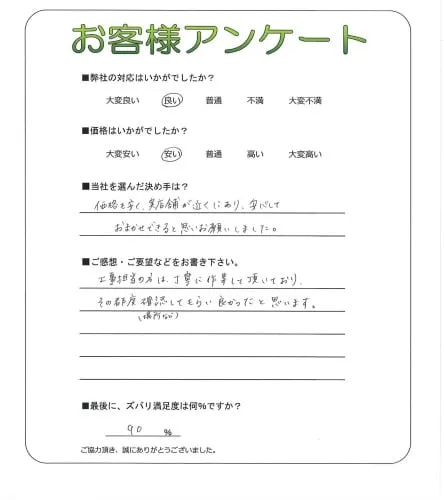 お客様アンケート
■弊社の対応はいかがでしたか?
大変良い 良い 普通 不満 大変不満
■価格はいかがでしたか?
大変安い 安い 普通 高い 大変高い
■当社を選んだ決め手は?
価格も安く、実店舗が近くにあり、安心して
おまかせできると思いお願いしました。
■ご感想・ご要望などをお書き下さい。
工事担当の方は、丁寧に作業して頂いており、
その都度確認してもらい良かったと思います。
(場所など)
■最後に、ズバリ満足度は何%ですか?
90 %
ご協力頂き、誠にありがとうございました。